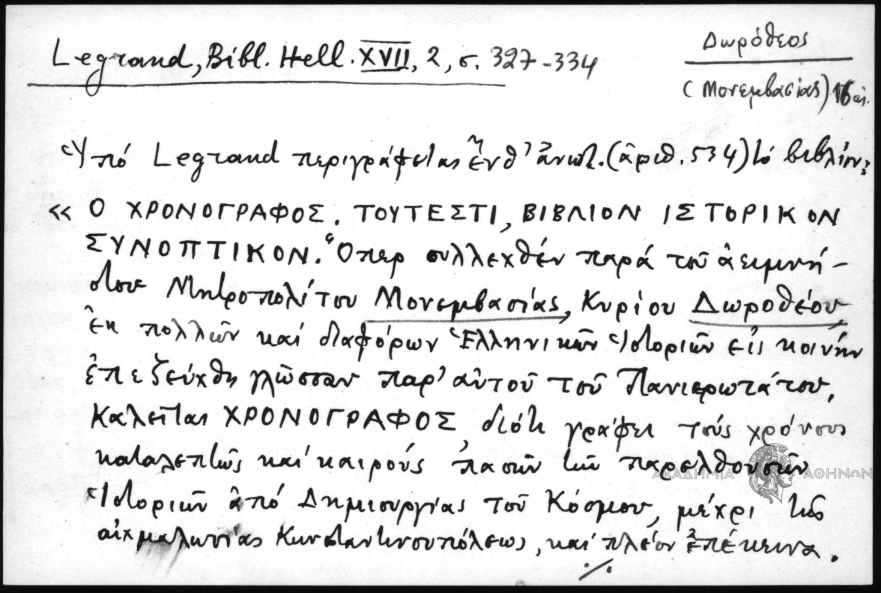 Legrand, Bibl. Hell. XVII, 2, σ. 327-334
Δωρόθεος
(Μονεμβασίας) 16 αἰ.
Ὑπό Legrand περιγράφεται ἐνθ' ἀνωτ. (ἀριθ. 534) τό βιβλίον:
« Ο ΧΡΟΝΟΓΡΑΦΟΣ. ΤΟΥΤΕΣΤΙ, ΒΙΒΛΙΟΝ ΙΣΤΟΡΙΚΟΝ
ΣΥΝΟΠΤΙΚΟΝ. Ὅπερ συλλεχθέν παρά τοῦ ἀειμνή-
στου Μητροπολίτου Μονεμβασίας, Κυρίου Δωροθέου
ἐκ πολλῶν καί διαφόρων Ἑλληνικῶν Ἱστοριῶν εἰς κοινήν
ἐπεζεύχθη γλῶσσαν παρ' αὐτοῦ τοῦ Πανιερωτάτου.
Καλεῖται ΧΡΟΝΟΓΡΑΦΟΣ, διότι γράφει τούς χρόνους
καταλεπτῶς καί καιρούς πασῶν τῶν παρελθουσῶν
Ἱστοριῶν ἀπό Δημιουργίας τοῦ Κόσμου, μέχρι τῆς
αἰχμαλωσίας Κωνσταντινουπόλεως, καί πλέον ἐπέκεινα.
./.
ΑΚΑΔΗΜΙΑ ΑΘΗΝΩΝ